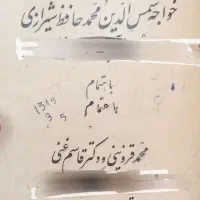 خواجه شمس الدین محمد حافظ شیرازی
باهتمام
باهتمام
1319
3 5
محمد قزوینی و دکتر قاسم غنی